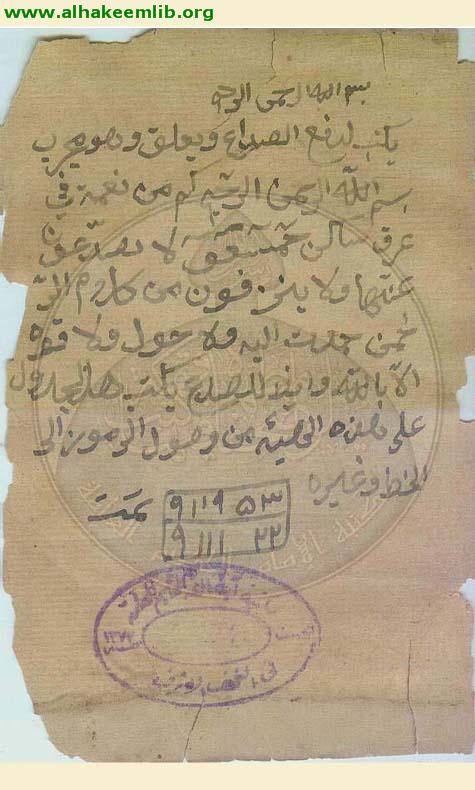 www.alhakeemlib.org
بسم الله الرحمن الرحيم
يكتب لدفع الصداع ويعلق وهو مجرب
بسم الله الرحمن الرحيم كم من نعمة في
عرق ساكن حمعسق لا يصدعون
عنها ولا ينزفون من كلام الر
حمن خمدت اليه ولا حول ولا قوة
الا بالله وايضا للصداع يكتب هذا الجدول
على هذه الهيئة من وصول الرموز الى
الخط وغيره
٩١١٩ ٥٣
٩١١١ ٢٢
تمت
في النجف الاشرف